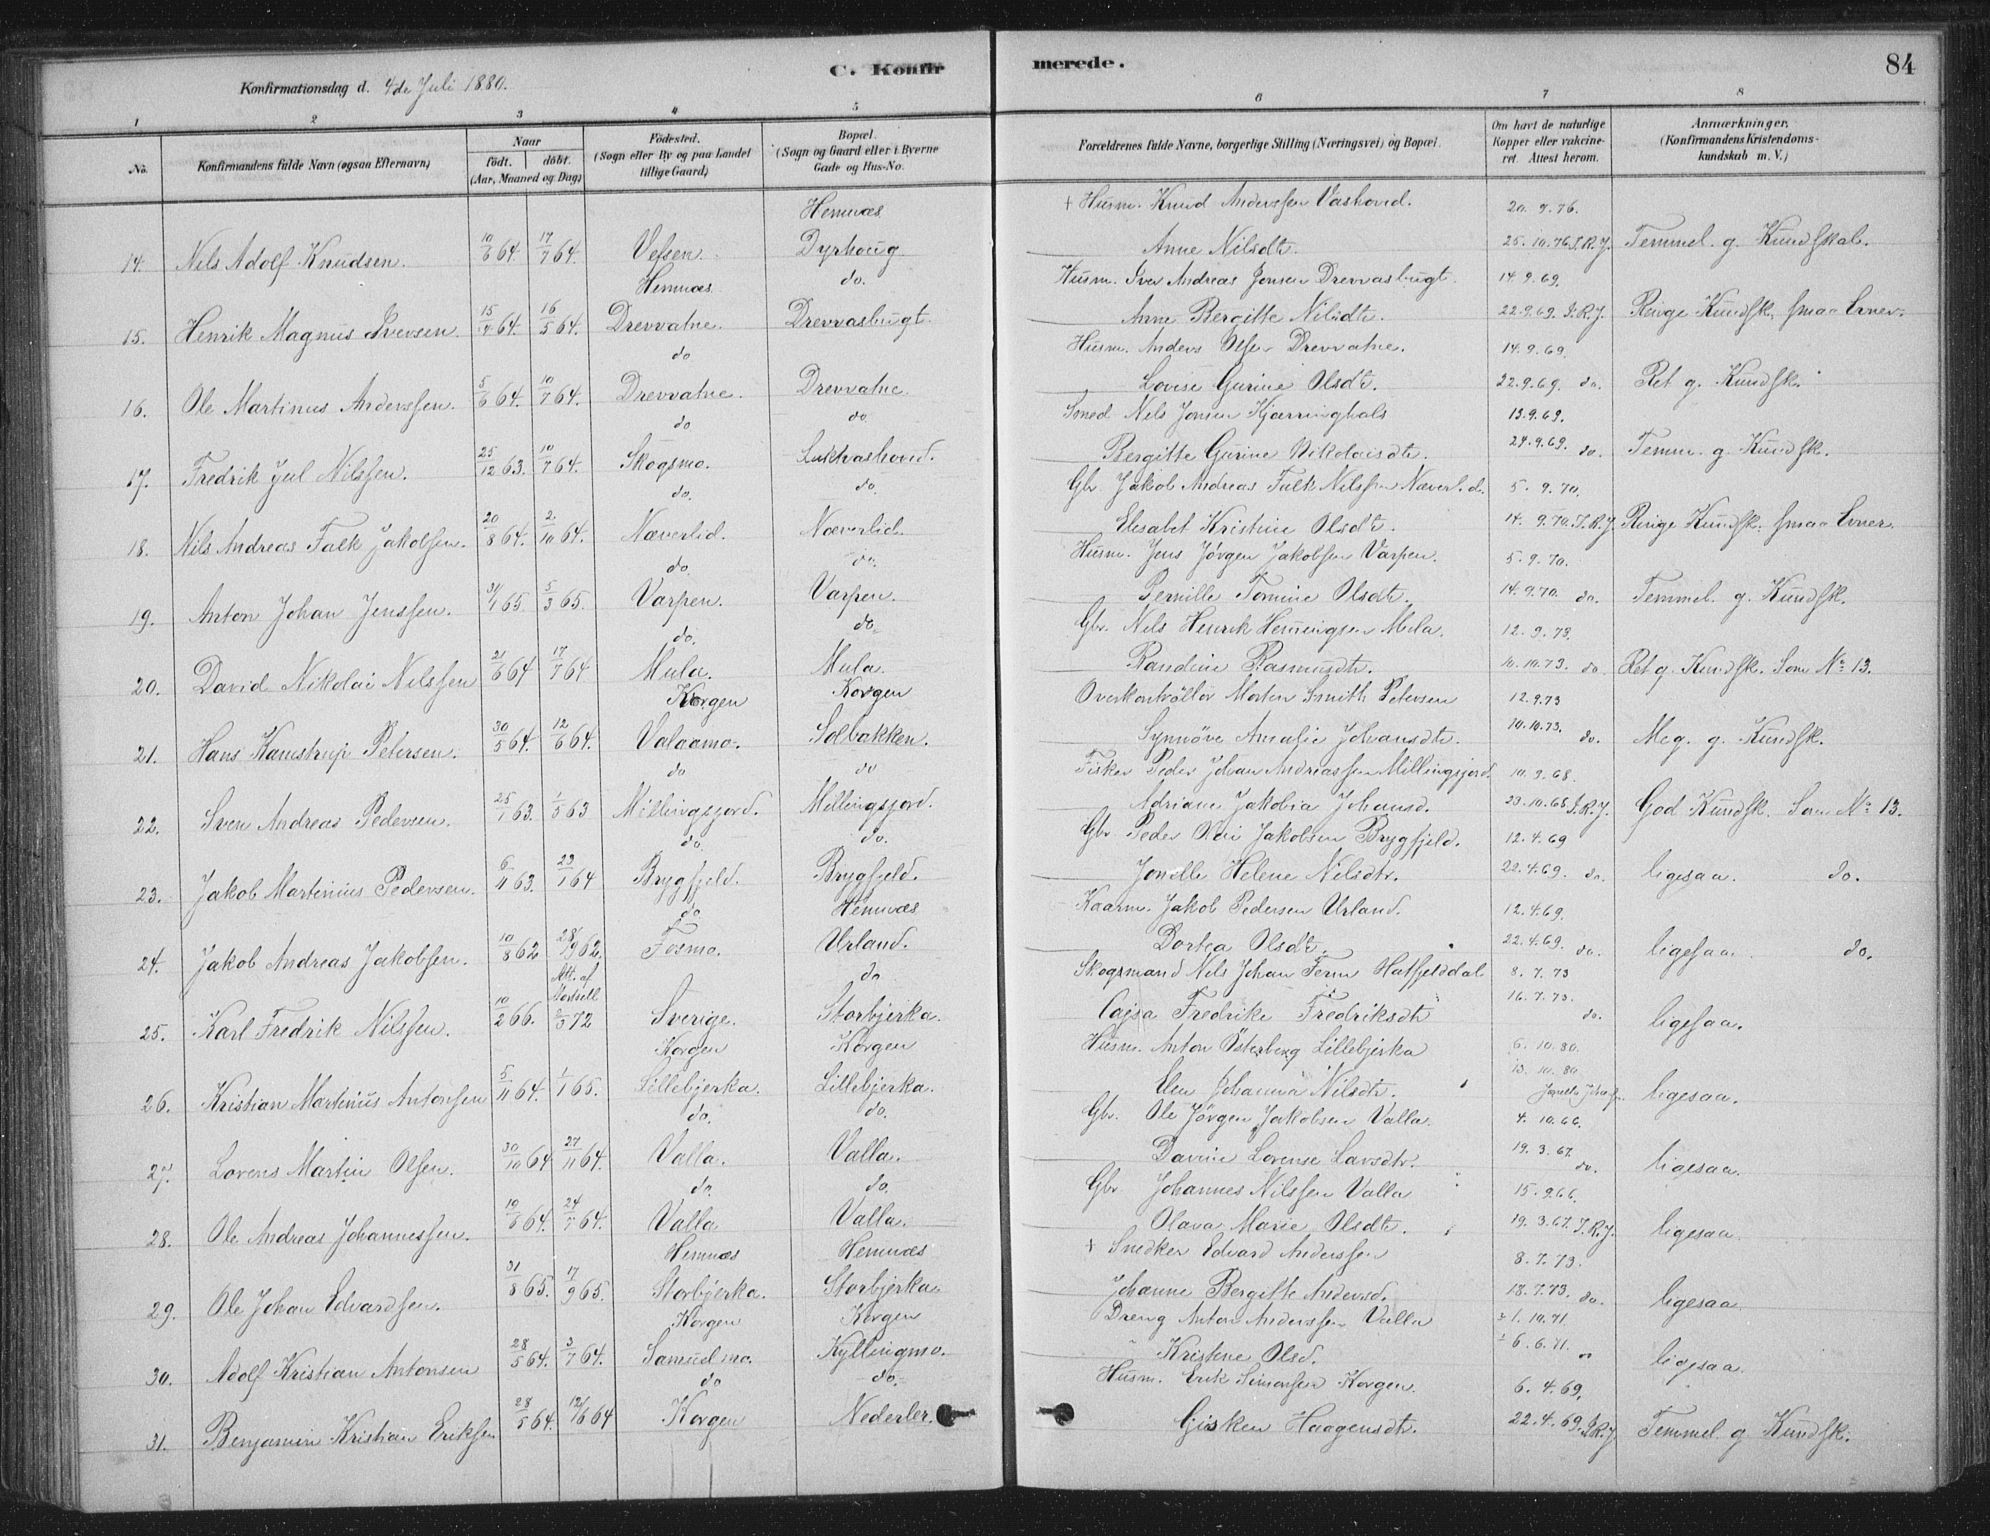 84
C. Konfirmerede.
Konfirmationsdag d. 4de Juli 1880.
1 2 3 4 5 6 7 8
No. Konfirmandens fulde Navn (ogsaa Efternavn) Naar født. døbt. (Aar, Maaned og Dag) Fødested. (Sogn eller By og paa Landet tillige Gaard) Bopæl. (Sogn og Gaard eller i Byerne Gade og Hus-No. Forældrenes fulde Navne, borgerlige Stilling (Næringsvei) og Bopæl. Om havt de naturlige Kopper eller vakcineret. Attest herom. Anmærkninger. (Konfirmandens Kristendomskundskab m. V.)
Hemnæs + Husm. Knud Anderssen Vashoved. 20.9.76.
14. Nils Adolf Knudsen. 10/6 64. 17/7 64. Vefsen. Dyrhoug. Anne Nilsdt. 25.10.76. J.R.J. Temmel. g. Kundskab.
Hemnæs. do. Husm. Iver Andreas Jonsen Drevvasbugt. 14.9.69.
15. Henrik Magnus Iversen. 15/4 64. 16/5 64. Drevvatne. Drevvasbugt. Anne Bergitte Nilsdt. 22.9.69. J.R.J. Ringe Kundsk. smaa Evner.
do Husm. Anders Olsen Drevvatne. 14.9.69.
16. Ole Martinus Anderssen. 5/6 64. 10/7 64. Drevvatne. Drevvatne. Lovise Gurine Olsdt. 22.9.69. do. Ret g. Kundsk.
do do Smed Nels Jonsen Kjærringhals 13.9.69.
17. Fredrik Jul Nilssen. 25/12 63. 10/7 64. Skogsmo. Bergitte Gurine Nikolaisdt. 24.9.69. do. Temm. g. Kundsk.
do. do. Gbr. Jakob Andreas Falk Nilssen Næverlid. 5.9.70.
18. Nils Andreas Falk Jakobsen. 20/8 64. 2/10 64. Næverlid. Næverlid. Elesabet Kristine Olsdt. 14.9.70. J.R.J. Ringe Kundsk. smaa Evner.
do. do. Husm. Jens Jørgen Jakobsen Varpen. 5.9.70.
19. Anton Johan Jenssen. 31/1 65. 5/3 65. Varpen. Varpen. Pernille Tomine Olsdt. 14.9.70. do. Temmel. g. Kundsk.
do. do. Gbr. Nils Henrik Hemingsen Mula. 12.9.73.
20. David Nikolai Nilssen 21/6 64 17/7 64 Mula. Mula. Randine Rasmusdt. 10.10.73. do Ret g. Kundsk. Som No 13.
Korgen Korgen Overkontrollør Morten Smith Petersen 12.9.73
21. Hans Kamstrup Petersen. 30/5 64. 12/6 64. Valaamo. Solbakken. Synnøve Amalie Johansdt. 10.10.73. do. Meg. g. Kundsk.
do do Fisker Peder Johan Andreassen Millingsjord. 10.9.68.
22. Sven Andreas Pedersen. 25/1 63. 1/5 63 Millingsjord. Millingsjord. Adriane Jakobia Johansd. 23.10.68. J.R.J. God Kundsk. Som No 13.
do. do. Gbr. Peder Jakobsen Brygfjeld. 12.4.69
23. Jakob Martinius Pedersen. 6/11 63. 23/1 64 Brygfjeld. Brygfjeld. Jonelle Helene Nilsdtr. 22.4.69. do. ligesaa. do.
do Hemnæs Kaarm. Jakob Pedersen Urland. 12.4.69.
24. Jakob Andreas Jakobsen. 10/8 62 28/9 62. Fosmo. Urland. Dortea Olsdt. 22.4.69. do. ligesaa. do.
Att. af do. Skogsmand Nils Johan Term Hatfjelddal 8.7.73
25. Karl Fredrik Nilssen. 10/2 66. 72 Sverige. Storbjerka. Cajsa Fredrike Fredriksdt 16.7.73. do. ligesaa.
Korgen Korgen Husm. Anton Østerberg Lillebjerka 6.10.80.
26. Kristian Martinus Antonsen 5/11 64. 1/1 65. Lillebjerka. Lillebjerka. Elen Johanna Nilsdt. 13.10.80 ligesaa.
do. do. Gbr. Ole Jørgen Jakobsen Valla. 4.10.66.
27. Lorens Martin Olsen. 30/10 64 27/11 64. Valla. Valla. Davine Lorense Larsdtr. 19.3.67. do. ligesaa.
do. do. Gbr Johannes Nilssen Valla 15.9.66.
28. Ole Andreas Johannessen. 10/6 64. 24/7 64. Valla Valla. Olava Marie Olsdt. 19.3.67. J.R.J. ligesaa.
Hemnæs Hemnæs + Snedker Edvard Anderssen 8.7.73.
29. Ole Johan Edvardsen. 31/8 65. 17/9 65. Storbjerka. Storbjerka. Johanne Bergitte Andersd. 18.7.73. do. ligesaa.
Korgen Korgen Dreng Anton Anderssen Valla 1.10.71.
30. Adolf Kristian Antonsen 28/5 64. 3/7 64. Samuelmo. Kyllingmo. Kristine Olsd. 6.6.71. ligesaa.
do do. Husm. Erik Simonsen Korgen. 6.4.69.
31. Benjamin Kristian Eriksen 28/5 64. 12/6 64 Korgen Nederler. Gisken Haagensdt. 22.4.69. J.R.J. Temmel. g. Kundsk.